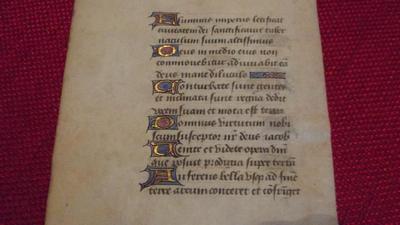 Fluminis impetus letificat
civitatem dei sanctificavit taber
naculum suum altissimus
Deus in medio eius non
commovebitur adiuvabit eā
deus mane diluculo
Conturbate sunt gentes
et inclinata sunt regna dedit
vocem suam et mota est terra
Dominus virtutum nobis
cum susceptor nr̄ deus iacob
Venite et videte opera dn̄i
que posuit prodigia super terrā
Auferens bella usqȝ ad finē
terre arcum conteret et cōfringet